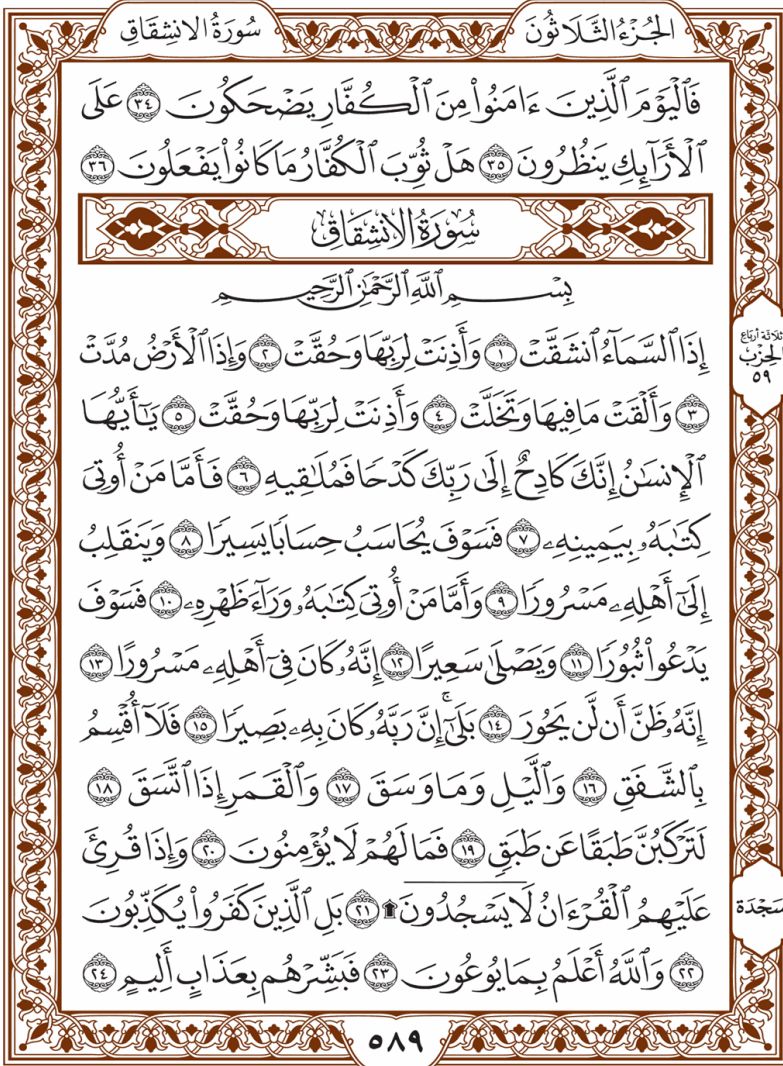 الجُزْءُ الثَّلَاثُونَ
سُورَةُ الانشِقَاقِ
فَٱلْيَوْمَ ٱلَّذِينَ ءَامَنُوا۟ مِنَ ٱلْكُفَّارِ يَضْحَكُونَ ٣٤ عَلَى
ٱلْأَرَآئِكِ يَنظُرُونَ ٣٥ هَلْ ثُوِّبَ ٱلْكُفَّارُ مَا كَانُوا۟ يَفْعَلُونَ ٣٦
سُورَةُ الانشِقَاقِ
بِسْمِ ٱللَّهِ ٱلرَّحْمَٰنِ ٱلرَّحِيمِ
إِذَا ٱلسَّمَآءُ ٱنشَقَّتْ ١ وَأَذِنَتْ لِرَبِّهَا وَحُقَّتْ ٢ وَإِذَا ٱلْأَرْضُ مُدَّتْ
٣ وَأَلْقَتْ مَا فِيهَا وَتَخَلَّتْ ٤ وَأَذِنَتْ لِرَبِّهَا وَحُقَّتْ ٥ يَٰٓأَيُّهَا
ٱلْإِنسَٰنُ إِنَّكَ كَادِحٌ إِلَىٰ رَبِّكَ كَدْحًا فَمُلَٰقِيهِ ٦ فَأَمَّا مَنْ أُوتِىَ
كِتَٰبَهُۥ بِيَمِينِهِۦ ٧ فَسَوْفَ يُحَاسَبُ حِسَابًا يَسِيرًا ٨ وَيَنقَلِبُ
إِلَىٰٓ أَهْلِهِۦ مَسْرُورًا ٩ وَأَمَّا مَنْ أُوتِىَ كِتَٰبَهُۥ وَرَآءَ ظَهْرِهِۦ ١٠ فَسَوْفَ
يَدْعُوا۟ ثُبُورًا ١١ وَيَصْلَىٰ سَعِيرًا ١٢ إِنَّهُۥ كَانَ فِىٓ أَهْلِهِۦ مَسْرُورًا ١٣
إِنَّهُۥ ظَنَّ أَن لَّن يَحُورَ ١٤ بَلَىٰٓۚ إِنَّ رَبَّهُۥ كَانَ بِهِۦ بَصِيرًا ١٥ فَلَآ أُقْسِمُ
بِٱلشَّفَقِ ١٦ وَٱلَّيْلِ وَمَا وَسَقَ ١٧ وَٱلْقَمَرِ إِذَا ٱتَّسَقَ ١٨
لَتَرْكَبُنَّ طَبَقًا عَن طَبَقٍ ١٩ فَمَا لَهُمْ لَا يُؤْمِنُونَ ٢٠ وَإِذَا قُرِئَ
عَلَيْهِمُ ٱلْقُرْءَانُ لَا يَسْجُدُونَ ۩ ٢١ بَلِ ٱلَّذِينَ كَفَرُوا۟ يُكَذِّبُونَ
٢٢ وَٱللَّهُ أَعْلَمُ بِمَا يُوعُونَ ٢٣ فَبَشِّرْهُم بِعَذَابٍ أَلِيمٍ ٢٤
ثلاثة أرباع
الحِزْب
٥٩
سَجْدَة
٥٨٩